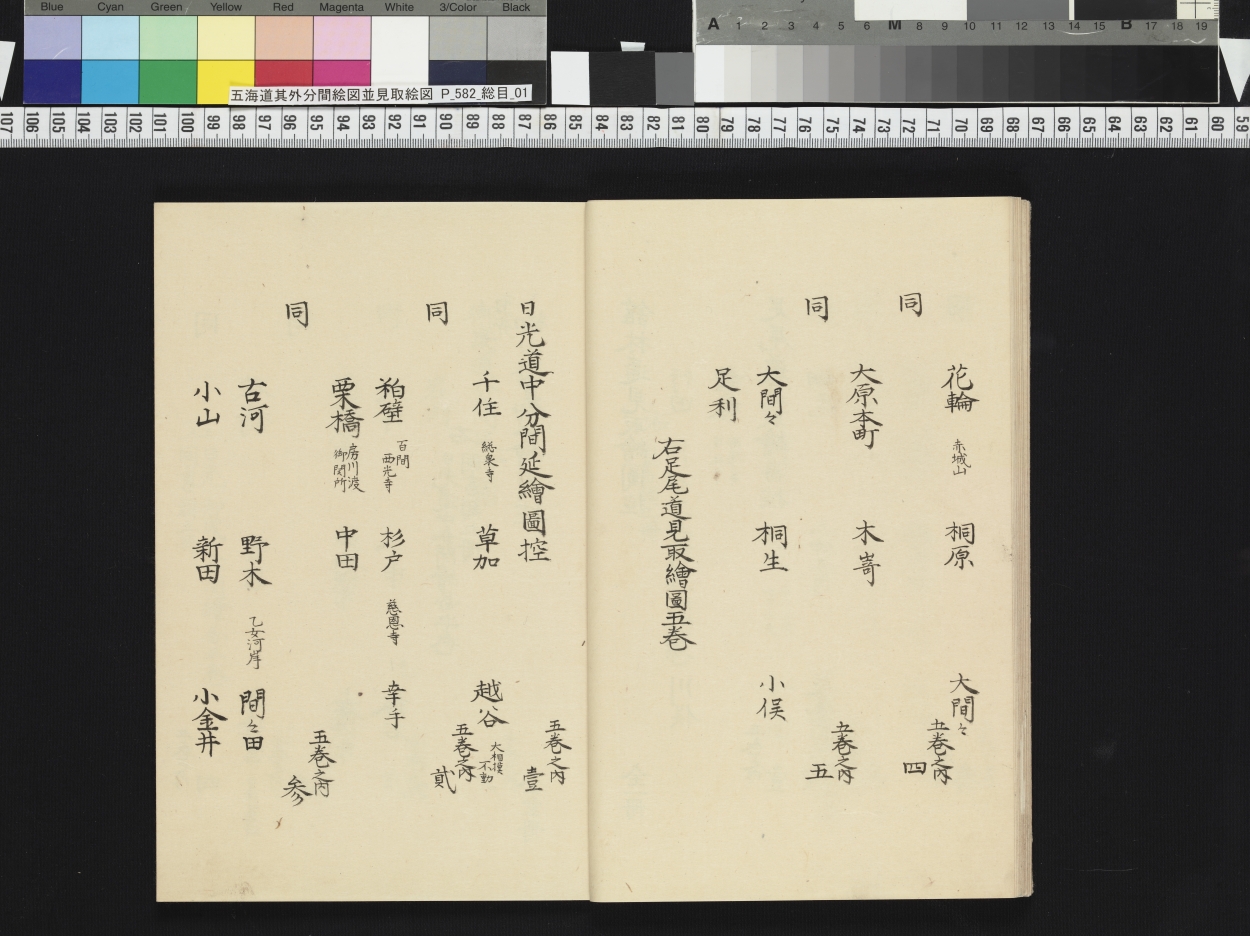 Blue Cyan Green Yellow Red Magenta White 3/Color Black
五海道其外分間絵図並見取絵図 P_582_総目_01
A 1 2 3 4 5 6 M 8 9 10 11 12 13 14 15 B 17 18 19
107 106 105 104 103 102 101 100 99 98 97 96 95 94 93 92 91 90 89 88 87 86 85 84 83 82 81 80 79 78 77 76 75 74 73 72 71 70 69 68 67 66 65 64 63 62 61 60 59
花輪 赤城山 桐原 大間々
同 五巻之内 四
大原本町 木嵜
同 五巻之内 五
大間々 桐生 小俣
足利
右足尾道見取繪圖五巻
日光道中分間延繪圖控 五巻之内 壹
千住 総泉寺 草加 越谷 大相模不動
同 五巻之内 貳
粕壁 百間 西光寺 杉戸 慈恩寺 幸手
栗橋 房川渡 御関所 中田
同 五巻之内 参
古河 野木 乙女河岸 間々田
小山 新田 小金井